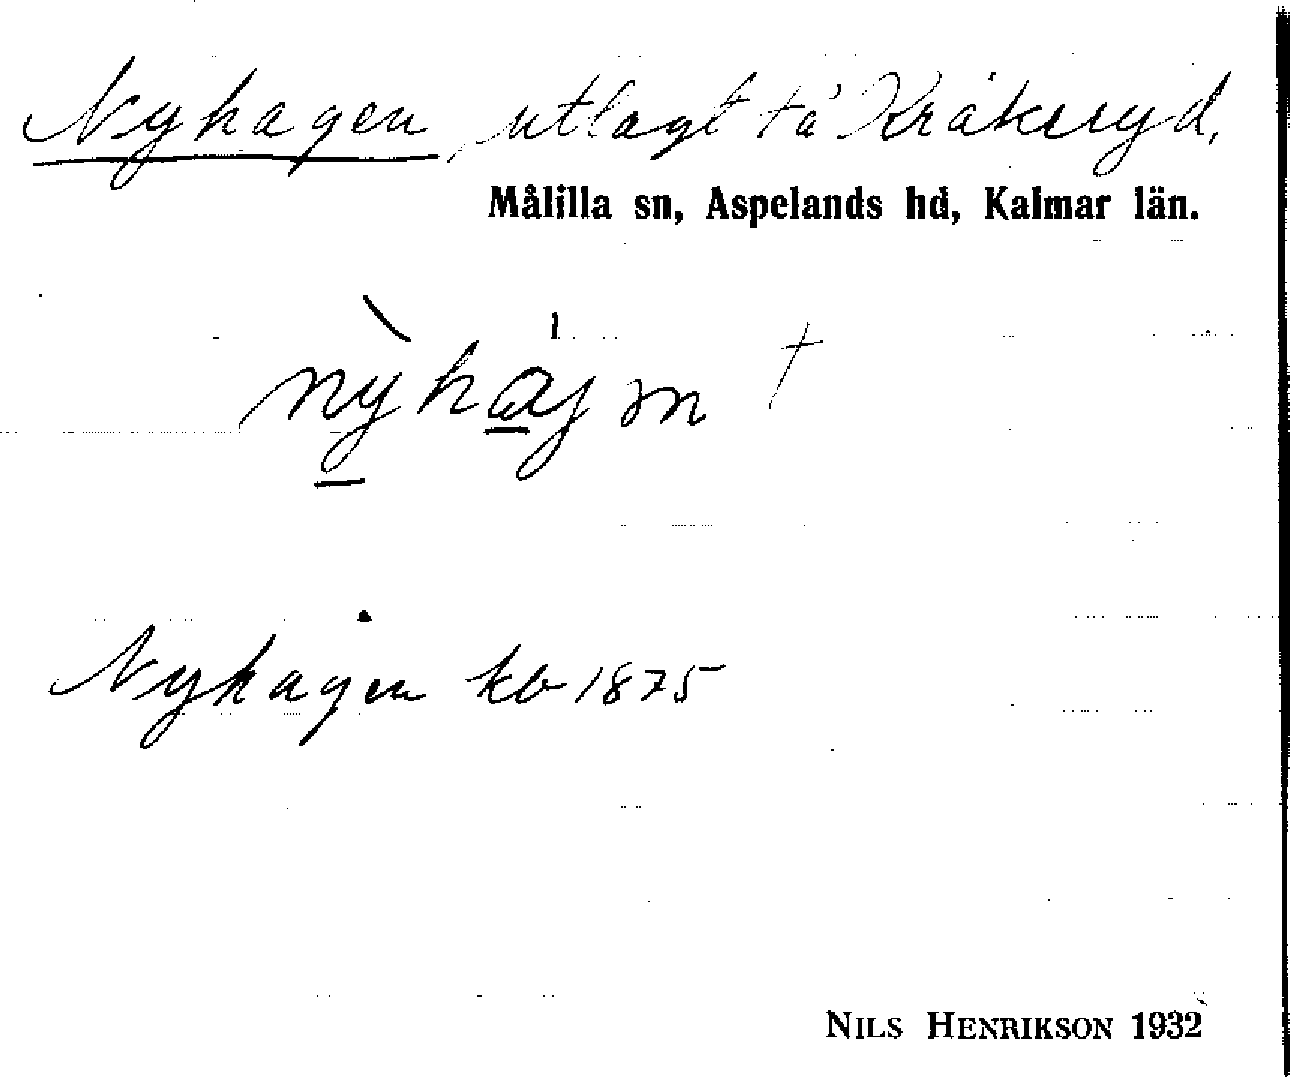 Nyhagen, utlagt tå Kråkeryd,
Målilla sn, Aspelands hd, Kalmar län.
Nyhagen kb 1875
NILS HENRIKSON 1932